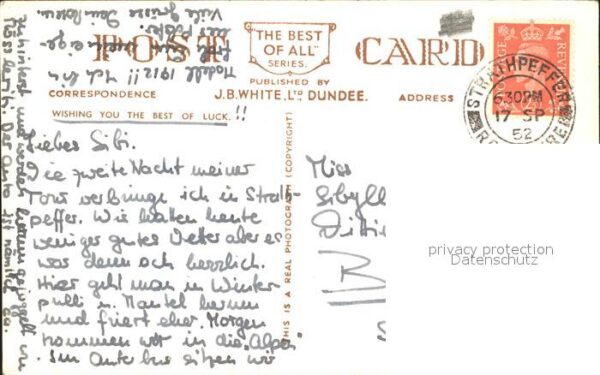 POST CARD
"THE BEST
OF ALL"
SERIES.
PUBLISHED BY
J.B. WHITE, LTD DUNDEE.
CORRESPONDENCE
ADDRESS
WISHING YOU THE BEST OF LUCK. !!
STRATHPEFFER
6.30PM
17 SP
52
POSTAGE
REVENUE
THIS IS A REAL PHOTOGRAPH (COPYRIGHT)
Liebes Sibi.
Die zweite Nacht meiner
Tour verbringe ich in Strath-
peffer. Wir hatten heute
weniger gutes Wetter aber es
war dennoch herrlich.
Hier geht man in Winter-
pulli u. Mantel herum
und friert eher. Morgen
kommen wir in die "Alpen"
Im Autobus sitzen wir
Miss
Sibyll
privacy protection
Datenschutz
hinten und werden
Der Auto ist nämlich ca.
Modell 1912 !! Ich bin
Viele Grüsse Dein